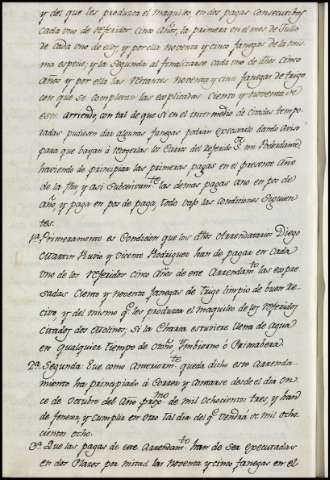 y del que les produzca el maquileo, en dos pagas consecutibas
cada uno de referidos cinco años, la primera en el mes de Julio
de cada uno de ellos, y por ella noventa y cinco fanegas de la mis-
ma especie; y la segunda al finalizarse cada uno de dhos cinco
años y por ella las restantes noventa y cinco fanegas de trigo
con que se completan las explicadas ciento y noventa de
este arriendo, con tal de que si en el intermedio de citadas tempo-
radas pudiesen dar algunas fanegas podran executarlo dando aviso
para que bayan á recogerlas los Carros del referido Sr. mi Poderdante
haviendo de principiar las primeras pagas en el presente año
de la fha y asi subcesivamte las demas pagas año en pos de
año, y paga en pos de paga, todo vajo las condiciones siguien-
tes.
1ª. Primeramente es Condicion que los dhos Arrendatarios Diego
Martin Rubio y Vicente Rodriguez han de pagar en cada
uno de los referidos cinco años de este Arrendamto las expre-
sadas ciento y noventa fanegas de trigo limpio de buen re-
civo y del mismo qe. les produzca el maquileo de los referidos
citados dos Molinos, si la Charca estuviere llena de agua
en qualquiera tiempo de Otoño, Imbierno ó Primabera.
2ª. Segunda: Que como anteriormte queda dicho este arrenda-
miento ha principiado á correr y contarse desde el dia on-
ce de Octubre del año pasado de mil ochocientos tres, y han
de fenecer, y cumplir en otro tal dia del qe. vendrá de mil ocho-
cientos ocho.
3ª. Que las pagas de este Arrendamto han de ser executadas
en dos Plazos por mitad las noventa y cinco fanegas en el